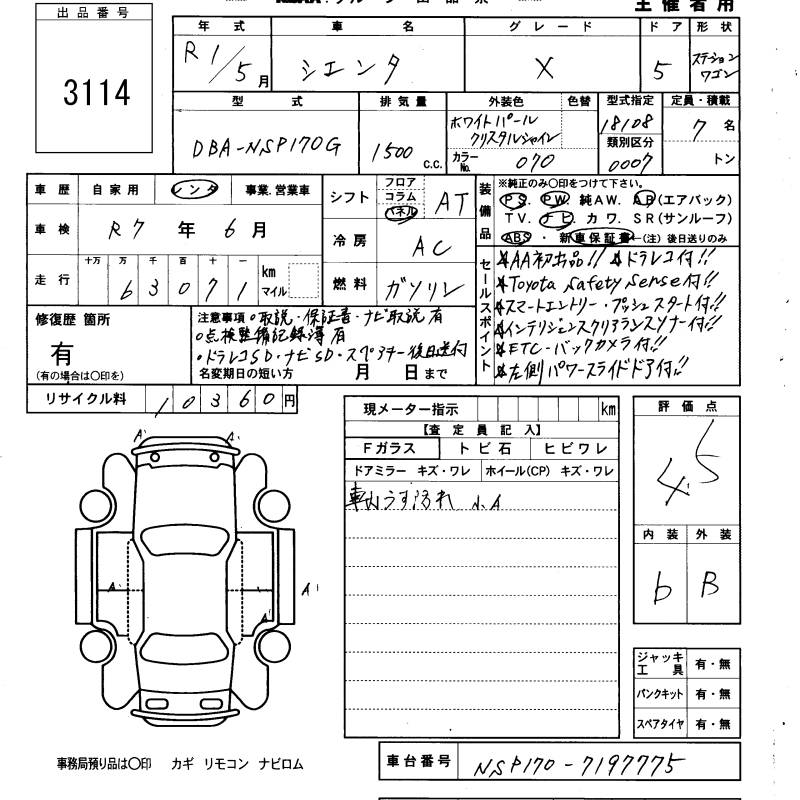 主催者用
出品番号
3114
年式 車名 グレード ドア 形状
R1/5月 シエンタ X 5 ステーションワゴン
型式 排気量 外装色 色替 型式指定 定員・積載
DBA-NSP170G 1500 c.c. ホワイトパール
クリスタルシャイン 18108 7名
類別区分
カラーNo. 070 0007 トン
車歴 自家用 レンタ 事業.営業車
車検 R7年6月
走行 十万 万 千 百 十 一
63071 km
マイル
シフト フロア
コラム
パネル AT
冷房 AC
燃料 ガソリン
装備品 ※純正のみ〇印をつけて下さい。
PS. PW. 純AW. AB(エアバック)
TV. ナビ カワ. SR(サンルーフ)
ABS・新車保証書←(注)後日送りのみ
セールスポイント
★AA初出品!! ★ドラレコ付!!
★Toyota Safety Sense付!!
★スマートエントリー・プッシュスタート付!!
★インテリジェンスクリアランスソナー付!!
★ETC・バックカメラ付!!
★左側パワースライドドア付!!
修復歴 箇所
有
(有の場合は〇印を)
注意事項 ○取説・保証書・ナビ取説 有
○点検整備記録簿 有
○ドラレコSD・ナビSD・スペアキー後日送付
名変期日の短い方 月 日まで
リサイクル料 10360円
現メーター指示 km
【査定員記入】
Fガラス トビ石 ヒビワレ
ドアミラー キズ・ワレ ホイール(CP) キズ・ワレ
車内うす汚れ 小A
評価点
4.5
内装 外装
b B
A' A'
A' A'
A'
ジャッキ工具 有・無
パンクキット 有・無
スペアタイヤ 有・無
事務局預り品は〇印 カギ リモコン ナビロム
車台番号 NSP170-7197775